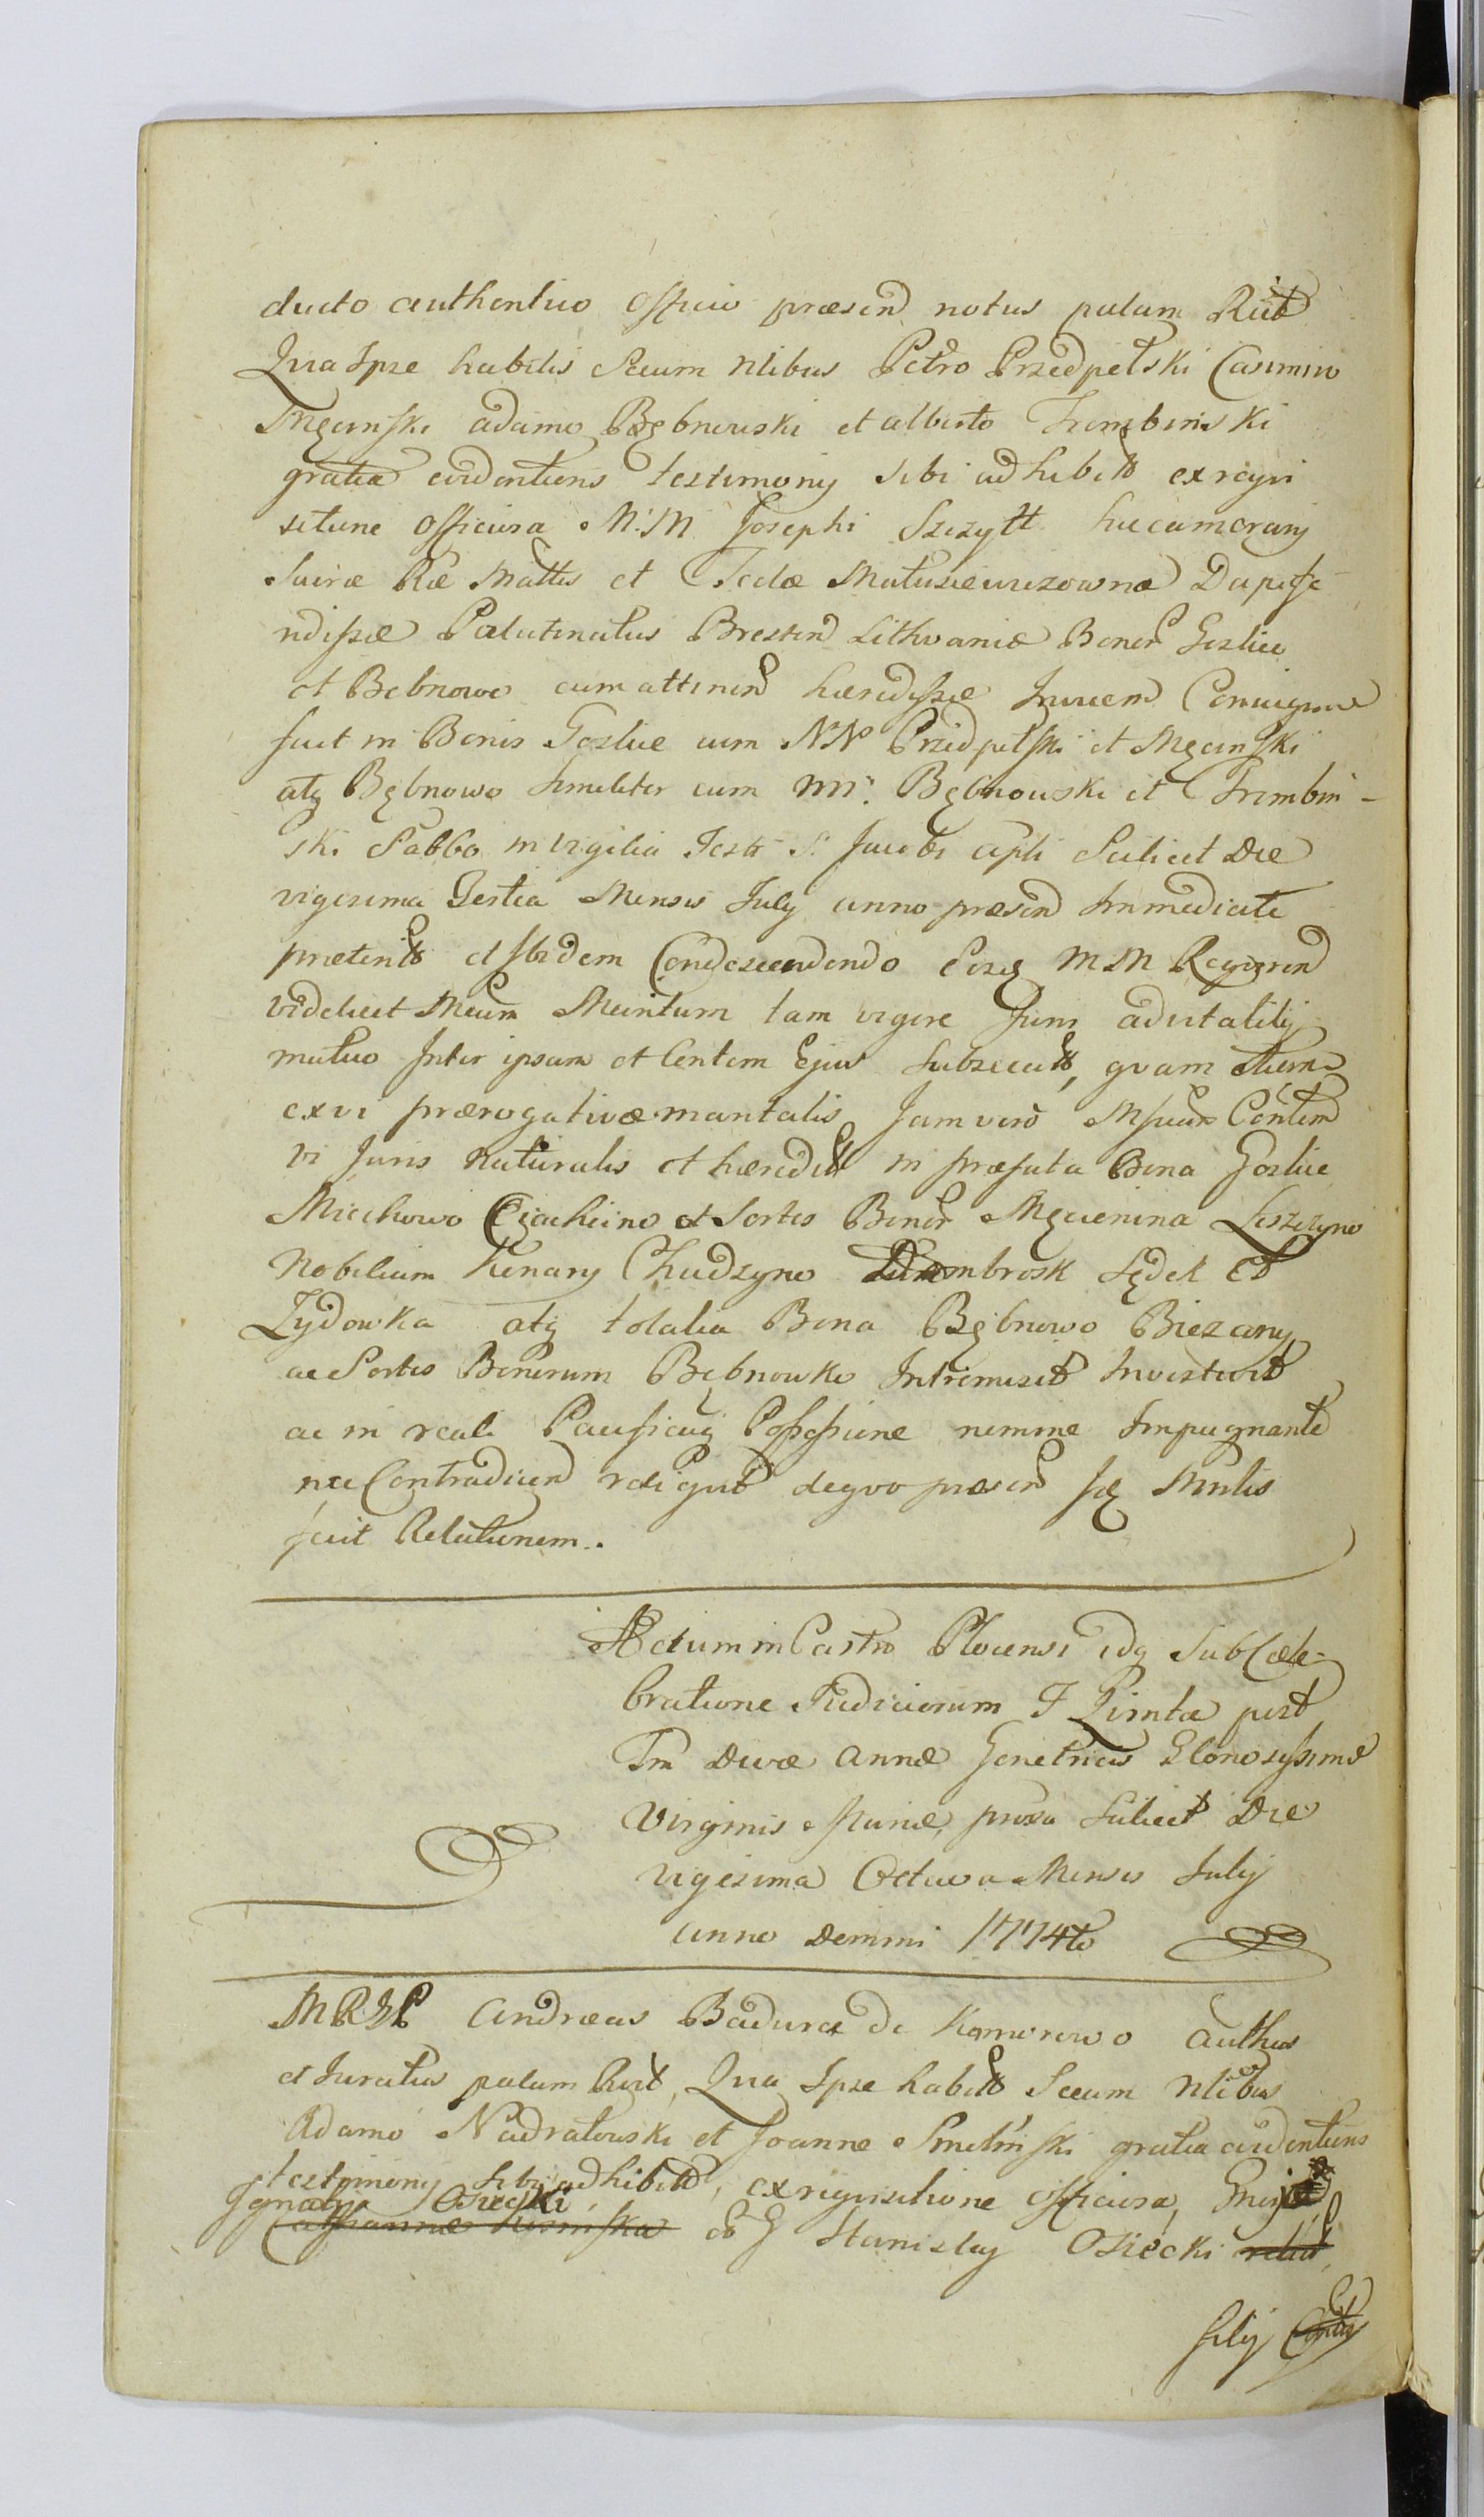 ducto authentico Officio præsend notus palam Rūt
Qua Ipse habitis Secum Nlibus Petro Przedpelski Casimiro
Męcinski adamo Bębnowski et alberto Trembinski
gratia evidentiens testimonij sibi adhibit exreqvi
sitione Officiosa M: M Josephi Szczytt Succamerarij
Sacræ Ræ Mattis et Teclæ Matusiewiczownæ Dapife-
ridissæ Palatinatus Brestend Lithvaniæ Bonor Gozlice
et Bębnowo cum attinend hæredissæ Invicem Conjugum
fuit in Bonis Gozlice cum NN Przedpelski et Męcinski
atq Bębnowo Similiter cum NN: Bębnowski et Trembin-
ski Sabbo in vigilia Festi S. Jacobi Apli Scilicet Die
vigesima Tertia Mensis July anno præsend Immediate
præterit et Ibidem Condescendendo Eosq MM Reqvirend
videlicet Mcum Maritum tam vigore Juris advitalitij
mutuo Inter ipsum et Contem Ejus Subsecut, qvam etiam
ex vi prærogativæ maritalis Jam vero Mficam Contem
vi Juris Naturalis et hæredit in præfata Bona Gozlice
Miechowo Ciachcino et Sortes Bonor Męcienina Leszczyno
Nobilium Kunary Chudzyno Dąmbrosk Sędek Et
Zydowka atq totalia Bona Bębnowo Biezany
ac Sortes Bonorum Bębnowko Intromisit Investivit
ac in reali Pacificaq Possessione nemine Impugnante
nec Contradicend reliqvit deqvo præsend sæ Mnlis
fecit Relationem.
Actum in Castro Plocensi idq Sub Cæle-
bratione Judiciorum F Qinta post
Fm Divæ Annæ Genetricis Glorosyssimæ
Virginis Mariæ, proxa Scilicet Die
vigesima Octava Mensis July
Anno Domini 1774to
MRGP Andreas Badura de Komorowo Authus
et Juratus palam Rūt, Qua Ipse habit Secum Nlibus
Adamo Nadratowski et Joanne Smolinski gratia evidentiens
testimonij sibi adhibit, exreqvisitione officiosa, Gnerj
Ignatij Osiecki
et G Stanislay Osiecki relict
filij